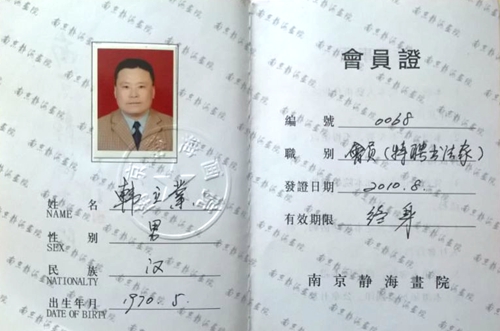 姓 名 韩立業
NAME
性 别 男
SEX
民 族 汉
NATIONALTY
出生年月 1970.5.
DATE OF BIRTY
會員證
编 號 0068
職 别 會员(特聘书法家)
發證日期 2010.8.
有效期限 终身
南京静海畫院